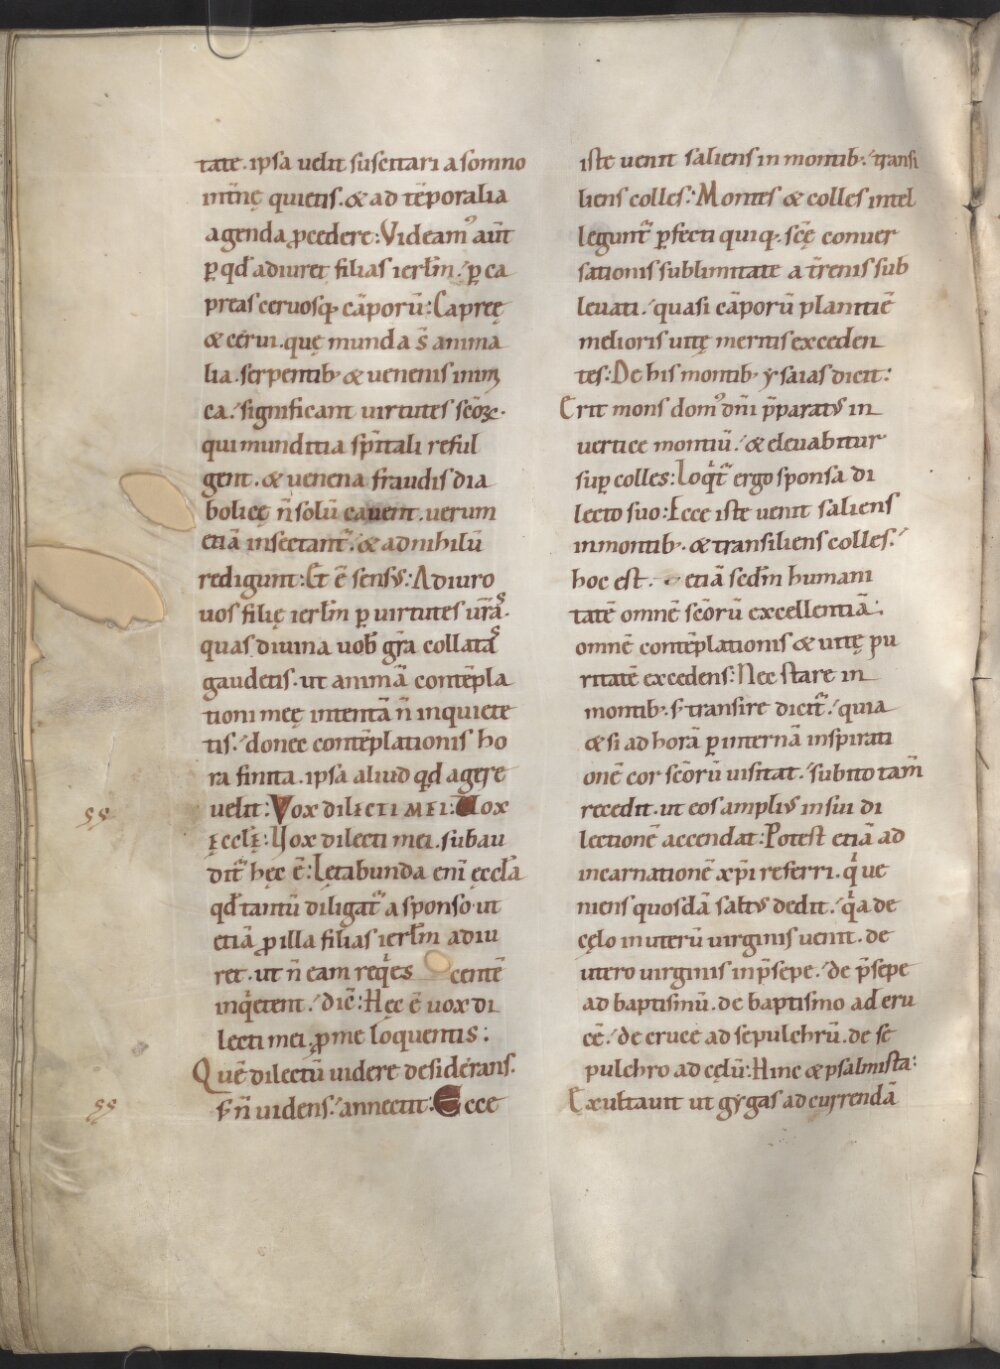 tate. ipsa uelit suscitari a somno
int̄nę quietis. & ad tēporalia
agenda ꝓcedere: Videamꝰ aūt
ꝑ qđ adiuret filias ierłm. ꝑ ca
preas ceruosq; cāporū: Capreę
& cerui. quę munda s̄ anima
lia. serpentib; & uenenis inimi
ca. significant uirtutes scōꝝ.
qui munditia sp̄itali reful
gent. & uenena fraudis dia
bolicę n̄ solū cauent. uerum
etiā insectant᷑. & ad nihilū
redigunt: Et ē sensus: Adiuro
uos filię ierłm ꝑ uirtutes ur̄as.
quas diuina uob̄ gr̄a collatas
gaudetis. ut animā contēpla
tioni meę intentā n̄ inquiete
tis. donec contēplationis ho
ra finita. ipsa aliud qđ agere
uelit: Vox dilecti mei: Vox
ęcclę: Vox dilecti mei. subau
dit᷑ hęc ē: Lętabunda enī ęccła
qđ tantū diligat᷑ a sponso. ut
etiā ꝓ illa filias ierłm adiu
ret. ut n̄ eam reqͥescentē
inqͥetent. dic̄: Hęc ē uox di
lecti mei ꝓ me loquentis:
Quē dilectū uidere desiderans.
s; n̄ uidens. annectit: Ecce
ss
ss
iste uenit saliens in montib; transi
liens colles: Montes & colles intel
legunt᷑ ꝑfecti quiq; scę̄ conuer
sationis sublimitate a tr̄enis sub
leuati. quasi cāporū planitiē
melioris uitę meritis exceden
tes: De his montib; ysaias dicit:
Erit mons domꝰ dn̄i p̄paratus in
uertice montiū. & eleuabitur
suꝑ colles: Loqͥt᷑ ergo sponsa di
lecto suo: Ecce iste uenit saliens
in montib; & transiliens colles.
hoc est. etiā sedm humani
tatē omnē scōrū excellentiā.
omnē contēplationis & uitę pu
ritatē excedens: Nec stare in
montib; s; transire dicit᷑. quia
& si ad horā ꝑ internā inspirati
onē cor scōrū uisitat. subito tam̄
recedit. ut eos amplius in sui di
lectionē accendat: Potest etiā ad
incarnationē xp̄i referri. qͥ ue
niens quosdā saltus dedit. qͥa de
cęlo in uterū uirginis uenit. de
utero uirginis in p̄sepe. de p̄sepe
ad baptismū. de baptismo ad cru
cē. de cruce ad sepulchrū. de se
pulchro ad cęlū: Hinc & psalmista:
Exultauit ut gygas ad currendā